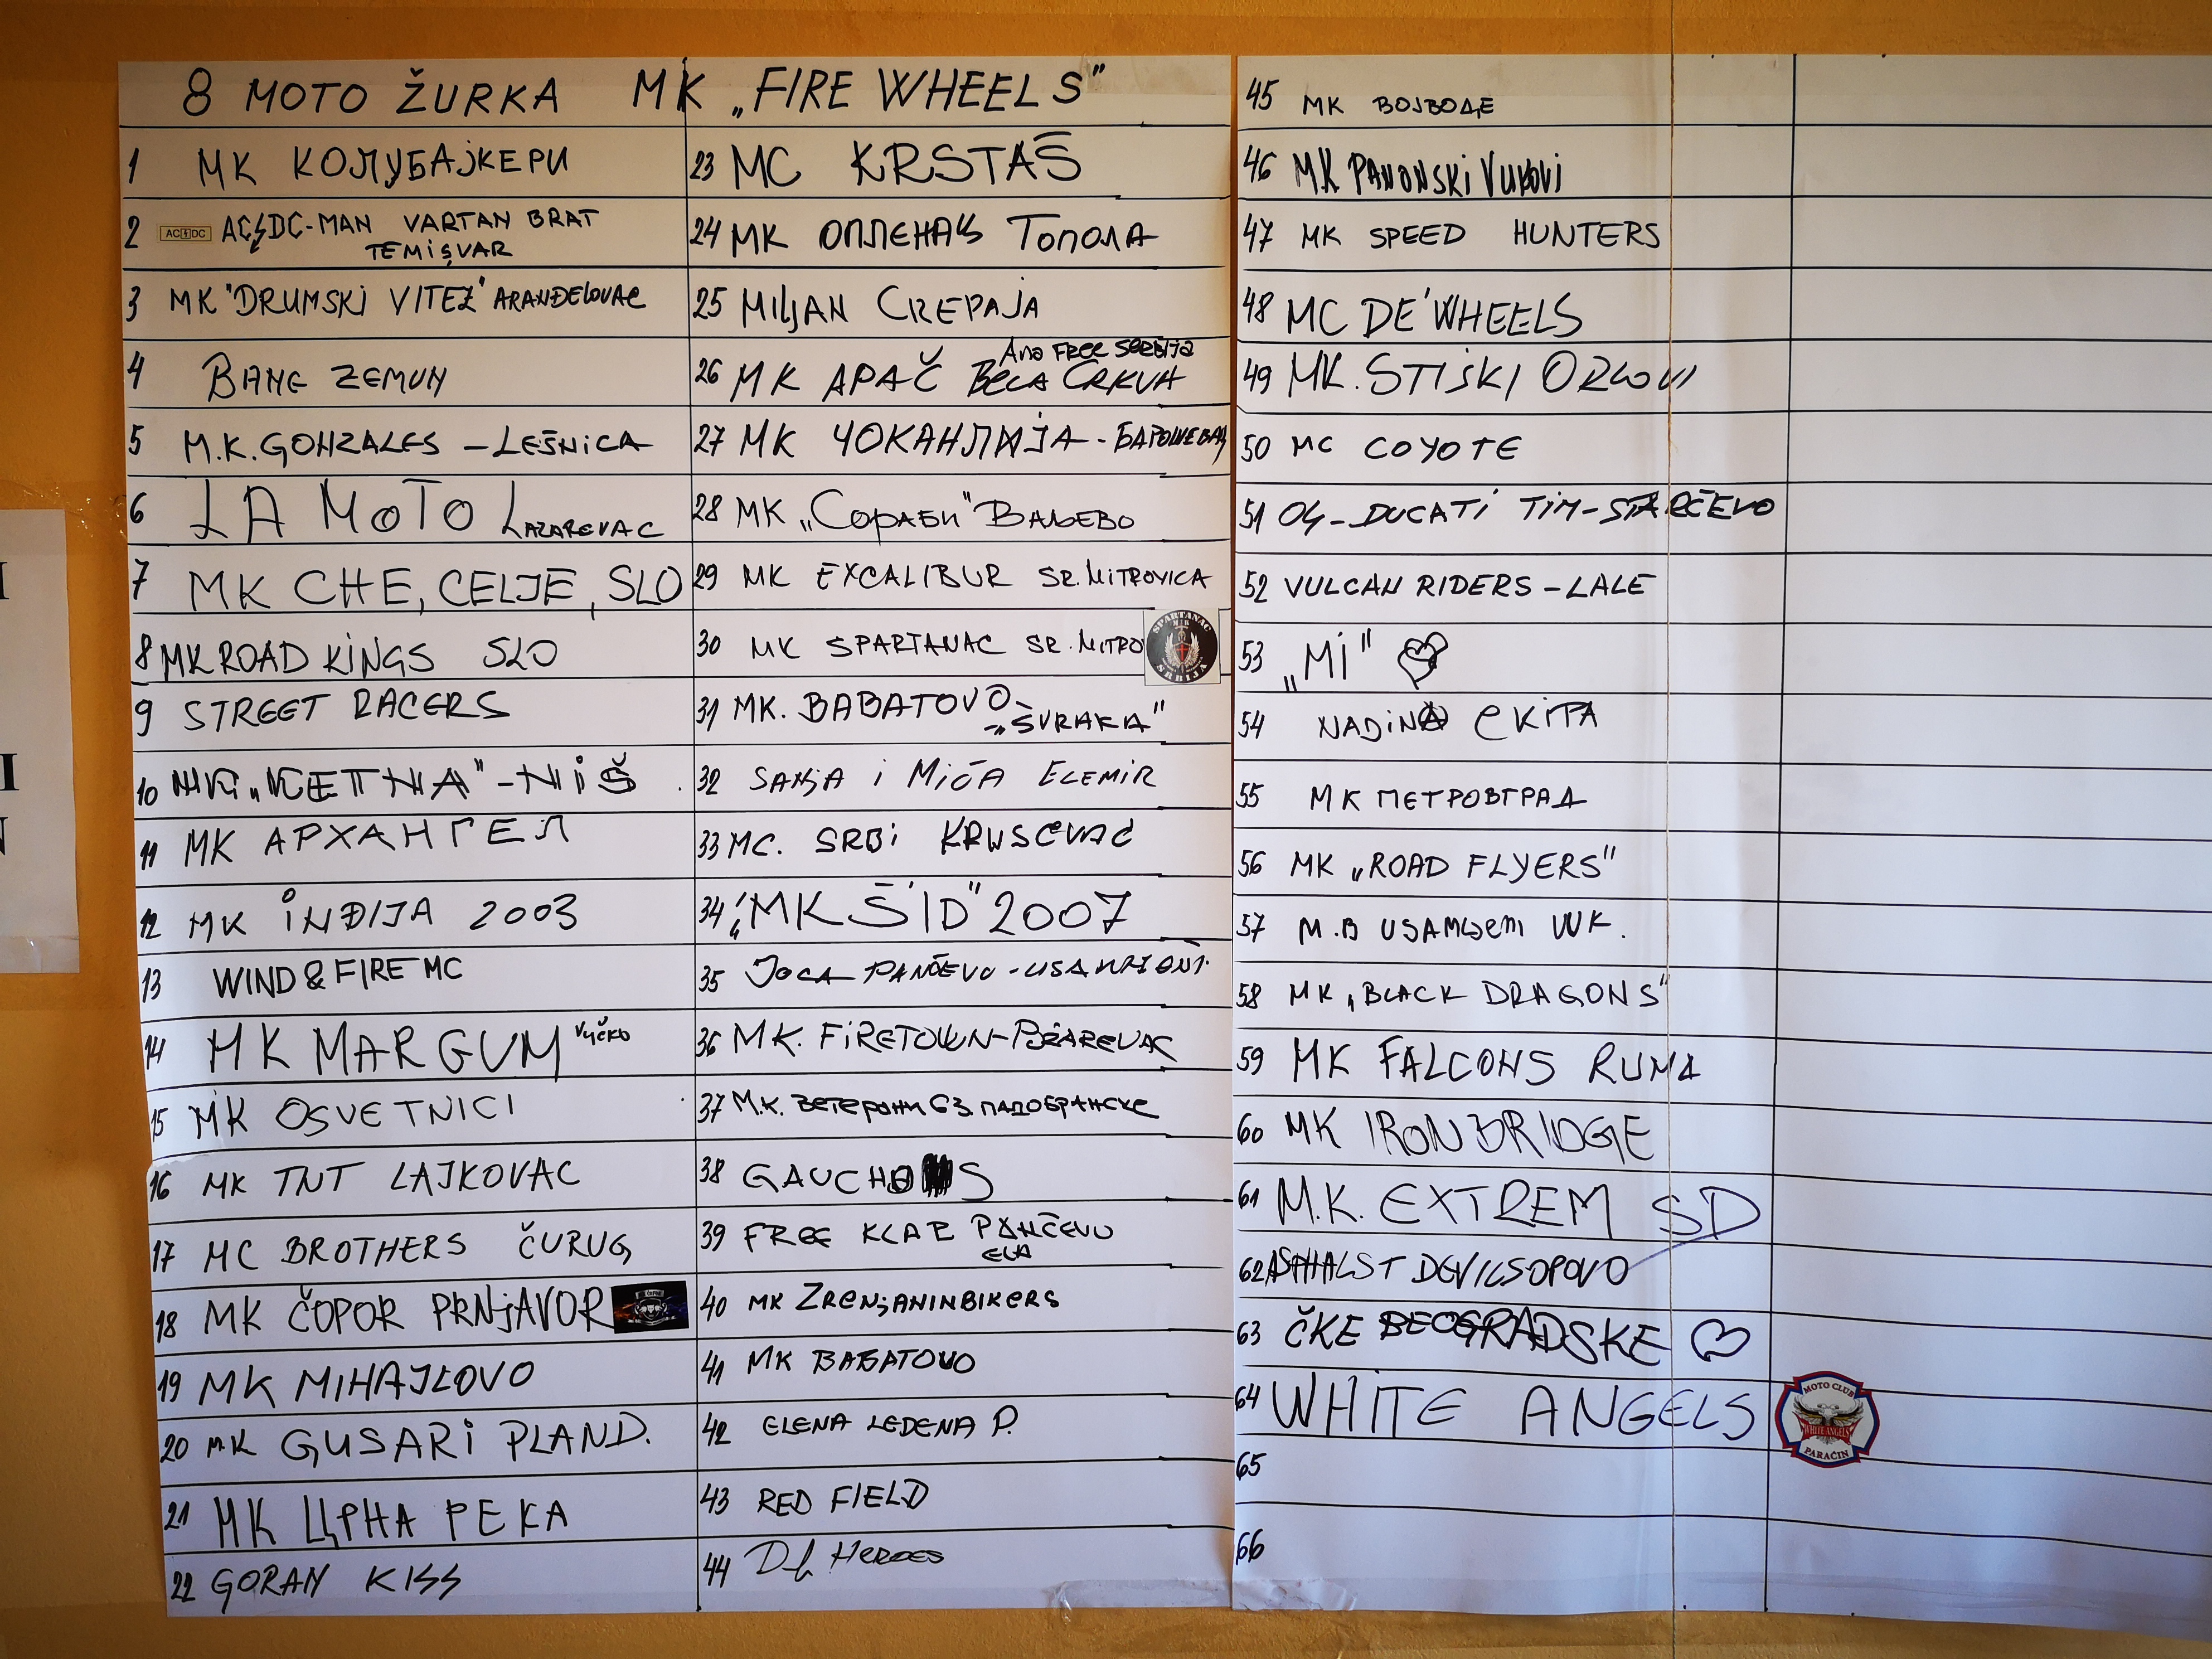 8 MOTO ŽURKA MK „FIRE WHEELS”
1 МК КОЛУБАЈКЕРИ
2 AC⚡DC AC⚡DC-MAN VARTAN BRAT
TEMIȘVAR
3 MK "DRUMSKI VITEZ" ARANĐELOVAC
4 BANE ZEMUN
5 M.K. GONZALES - LEŠNICA
6 LA MOTO LAZAREVAC
7 MK CHE, CELJE, SLO
8 MK ROAD KINGS SLO
9 STREET RACERS
10 - NIŠ
11 МК АРХАНГЕЛ
12 MK INĐIJA 2003
13 WIND & FIRE MC
14 MK MARGUM
15 MK OSVETNICI
16 MK TNT LAJKOVAC
17 MC BROTHERS ČURUG
18 MK ČOPOR PRNjAVOR
19 MK MIHAJLOVO
20 MK GUSARI PLAND.
21 МК ЦРНА РЕКА
22 GORAN KISS
23 MC KRSTAŠ
24 МК ОПЛЕНАЦ ТОПОЛА
25 MILJAN CREPAJA
Ana FREE SERBIJA
26 MK APAČ BELA CRKVA
27 МК ЧОКАНЛИЈА - БАРОШЕВАЦ
28 МК „Сораби" ВАЉЕВО
29 MK EXCALIBUR SR. MITROVICA
30 MK SPARTANAC SR. MITRO
SPARTANAC
SRBIJA
31 MK. BABATOVO
- „ŠVRAKA"
32 SANJA i MIĆA ELEMIR
33 MC. SRBI KRUSEVAC
34 „MK ŠID" 2007
35 JOCA PANČEVO -
36 MK. FIRETOWN - POŽAREVAC
37 М.К. ВЕТЕРАНИ 63. ПАДОБРАНСКЕ
38 GAUCHOS
39 FREE PANČEVO
40 MK ZRENjANINBIKERS
41 MK BABATOVO
42 ELENA LEDENA P.
43 RED FIELD
44 HEROES
45 МК ВОЈВОДЕ
46 MK PANONSKI VUKOVI
47 MK SPEED HUNTERS
48 MC DE'WHEELS
49 MK. STIŠKI ORLOVI
50 MC COYOTE
51 - DUCATI TIM - STARČEVO
52 VULCAN RIDERS - LALE
53 „MI" ♡
54 NADINA EKITA
55 МК ПЕТРОВГРАД
56 MK „ROAD FLYERS"
57 M.B USAMLJENI VUK.
58 MK „BLACK DRAGONS"
59 MK FALCONS RUMA
60 MK IRON BRIDGE
61 M.K. EXTREM SD
62 ASPHALST DEVILS OPOVO
63 ČKE BEOGRADSKE ♡
64 WHITE ANGELS
MOTO CLUB
WHITE ANGELS
PARAĆIN
65
66